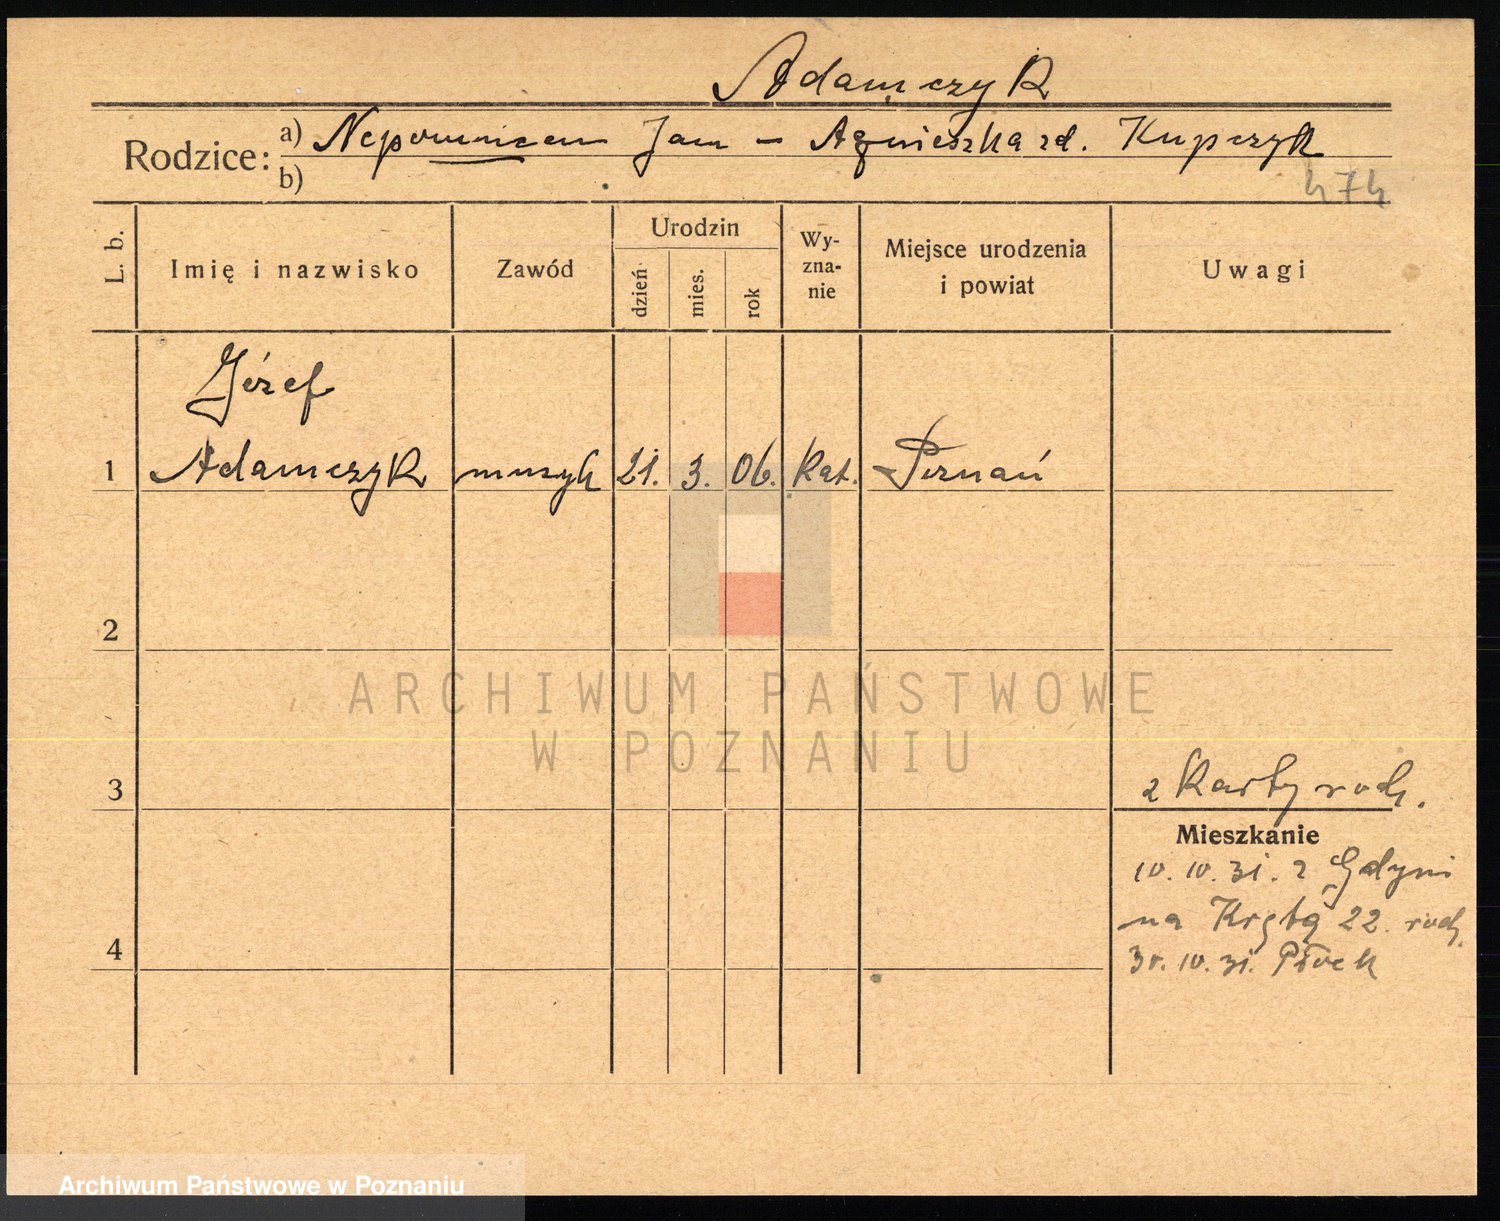 Adamczyk
Rodzice:
a) Nepomucen Jan – Agnieszka zd. Kupczyk
b)
474
L. b.
Imię i nazwisko
Zawód
Urodzin
dzień
mies.
rok
Wy-
zna-
nie
Miejsce urodzenia
i powiat
Uwagi
Józef
1 Adamczyk muzyk 21. 3. 06. Kat. Poznań
2
ARCHIWUM PAŃSTWOWE
W POZNANIU
3
z karty rodz.
Mieszkanie
10. 10. 31. z Gdyni
na Krętą 22. rodz.
4
31. Płock
Archiwum Państwowe w Poznaniu